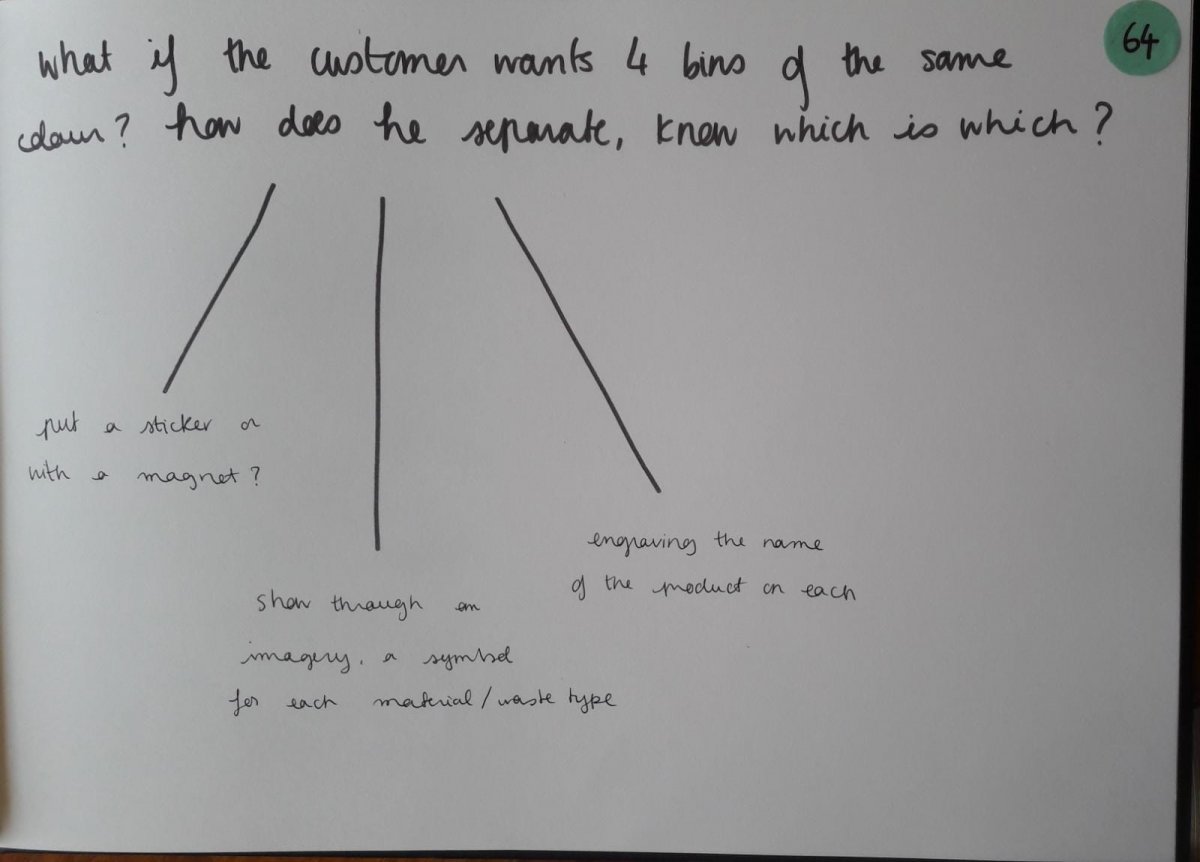 64
what if the customer wants 4 bins of the same
colour? how does he separate, know which is which?
put a sticker or
with a magnet?
show through an
imagery, a symbol
for each material/waste type
engraving the name
of the product on each